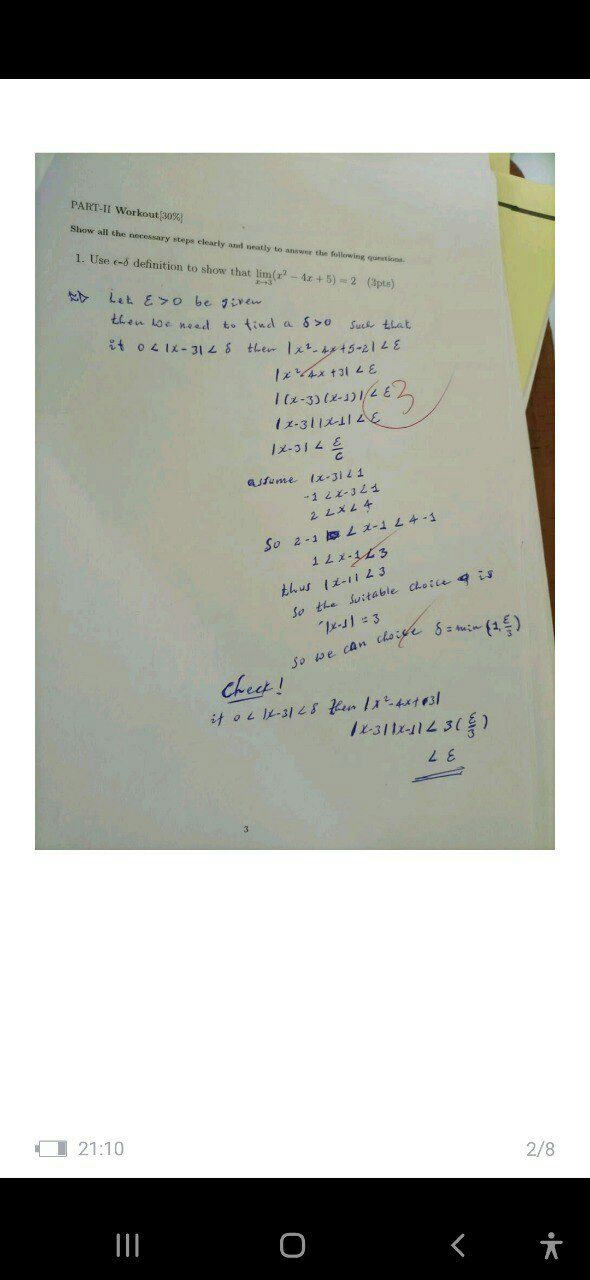 PART-II Workout[30%]
Show all the necessary steps clearly and neatly to answer the following questions.
1. Use ϵ-δ definition to show that lim x→3 (x² − 4x + 5) = 2 (3pts)
Let ε>0 be given
then we need to find a δ>0 such that
if 0<|x-3|<δ then |x²-4x+5-2|<ε
|x²-4x+3|<ε
|(x-3)(x-1)|<ε
3
|x-3||x-1|<ε
|x-3|<ε/c
assume |x-3|<1
-1<x-3<1
2<x<4
So 2-1 <x-1<4-1
1<x-1<3
thus |x-1|<3
So the suitable choice is
|x-1|=3
So we can choice δ=min{1,ε/3}
Check!
if 0<|x-3|<δ then |x²-4x+3|
|x-3||x-1|<3(ε/3)
<ε
3
21:10
2/8